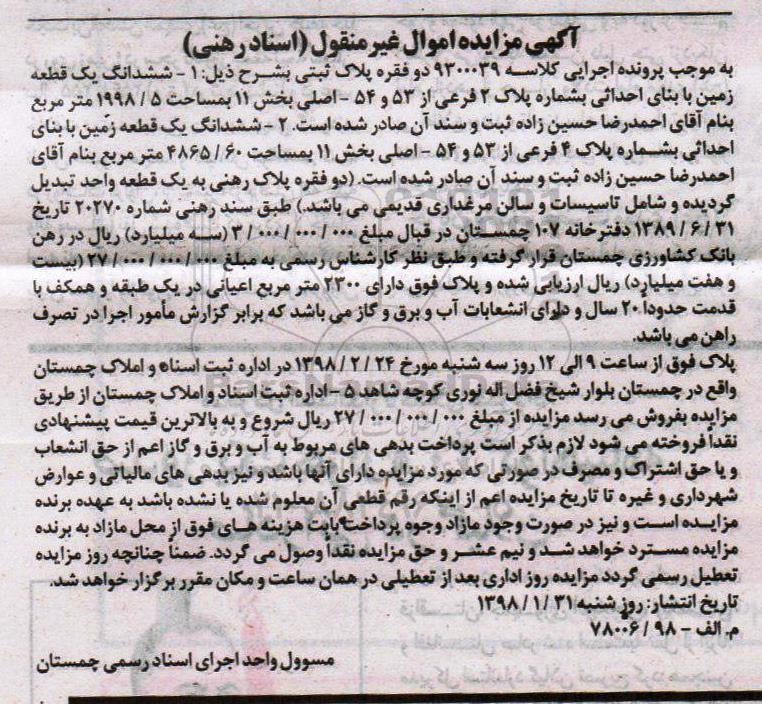 آگهی مزایده اموال غیر منقول (اسناد رهنی)
به موجب پرونده اجرایی کلاسه ۹۳۰۰۰۳۹ دو فقره پلاک ثبتی بشرح ذیل: ۱ - ششدانگ یک قطعه
زمین با بنای احداثی بشماره پلاک ۲ فرعی از ۵۳ و ۵۴ - اصلی بخش ۱۱ بمساحت ۵ / ۱۹۹۸ متر مربع
بنام آقای احمدرضا حسین زاده ثبت و سند آن صادر شده است. ۲ - ششدانگ یک قطعه زمین با بنای
احداثی بشماره پلاک ۴ فرعی از ۵۳ و ۵۴ - اصلی بخش ۱۱ بمساحت ۶۰ / ۴۸۶۵ متر مربع بنام آقای
احمدرضا حسین زاده ثبت و سند آن صادر شده است. (دو فقره پلاک رهنی به یک قطعه واحد تبدیل
گردیده و شامل تاسیسات و سالن مرغداری قدیمی می باشد.) طبق سند رهنی شماره ۲۰۲۷۰ تاریخ
۳۱ / ۶ / ۱۳۸۹ دفترخانه ۱۰۷ چمستان در قبال مبلغ ۰۰۰ / ۰۰۰ / ۰۰۰ / ۳ (سه میلیارد) ریال در رهن
بانک کشاورزی چمستان قرار گرفته و طبق نظر کارشناس رسمی به مبلغ ۰۰۰ / ۰۰۰ / ۰۰۰ / ۲۷ (بیست
و هفت میلیارد) ریال ارزیابی شده و پلاک فوق دارای ۲۳۰۰ متر مربع اعیانی در یک طبقه و همکف با
قدمت حدوداً ۲۰ سال و دارای انشعابات آب و برق و گاز می باشد که برابر گزارش مأمور اجرا در تصرف
راهن می باشد.
پلاک فوق از ساعت ۹ الی ۱۲ روز سه شنبه مورخ ۲۴ / ۲ / ۱۳۹۸ در اداره ثبت اسناد و املاک چمستان
واقع در چمستان بلوار شیخ فضل اله نوری کوچه شاهد ۵ - اداره ثبت اسناد و املاک چمستان از طریق
مزایده بفروش می رسد مزایده از مبلغ ۰۰۰ / ۰۰۰ / ۰۰۰ / ۲۷ ریال شروع و به بالاترین قیمت پیشنهادی
نقداً فروخته می شود لازم بذکر است پرداخت بدهی های مربوط به آب و برق و گاز اعم از حق انشعاب
و یا حق اشتراک و مصرف در صورتی که مورد مزایده دارای آنها باشد و نیز بدهی های مالیاتی و عوارض
شهرداری و غیره تا تاریخ مزایده اعم از اینکه رقم قطعی آن معلوم شده یا نشده باشد به عهده برنده
مزایده است و نیز در صورت وجود مازاد وجوه پرداخت بابت هزینه های فوق از محل مازاد به برنده
مزایده مسترد خواهد شد و نیم عشر و حق مزایده نقداً وصول می گردد. ضمناً چنانچه روز مزایده
تعطیل رسمی گردد مزایده روز اداری بعد از تعطیلی در همان ساعت و مکان مقرر برگزار خواهد شد.
تاریخ انتشار: روز شنبه ۳۱ / ۱ / ۱۳۹۸
م. الف - ۹۸ / ۷۸۰۰۶
مسوول واحد اجرای اسناد رسمی چمستان